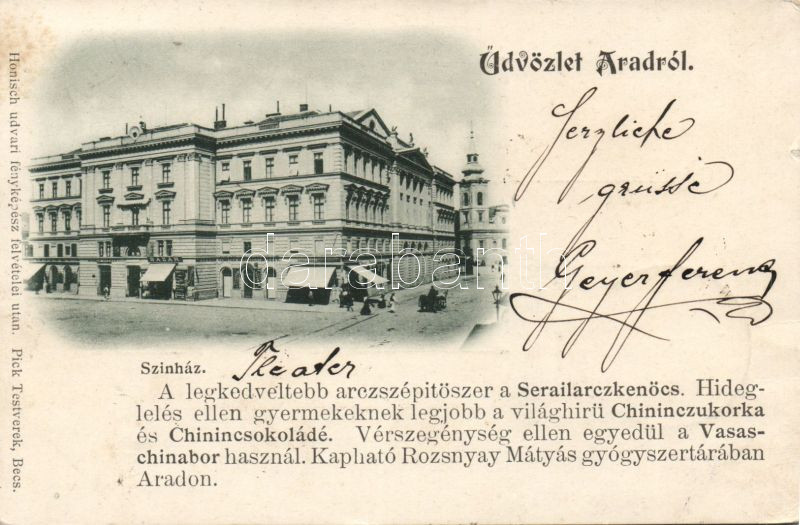 Üdvözlet Aradról.
Herzliche
grüsse
Geyer Ferenc
BAZAR
darabanth
Szinház.
Theater
A legkedveltebb arczszépitöszer a Serailarczkenöcs. Hideg-
lelés ellen gyermekeknek legjobb a világhirü Chininczukorka
és Chinincsokoládé. Vérszegénység ellen egyedül a Vasas-
chinabor használ. Kapható Rozsnyay Mátyás gyógyszertárában
Aradon.
Honisch udvari fényképész felvételei utan. Pick Testverek, Becs.